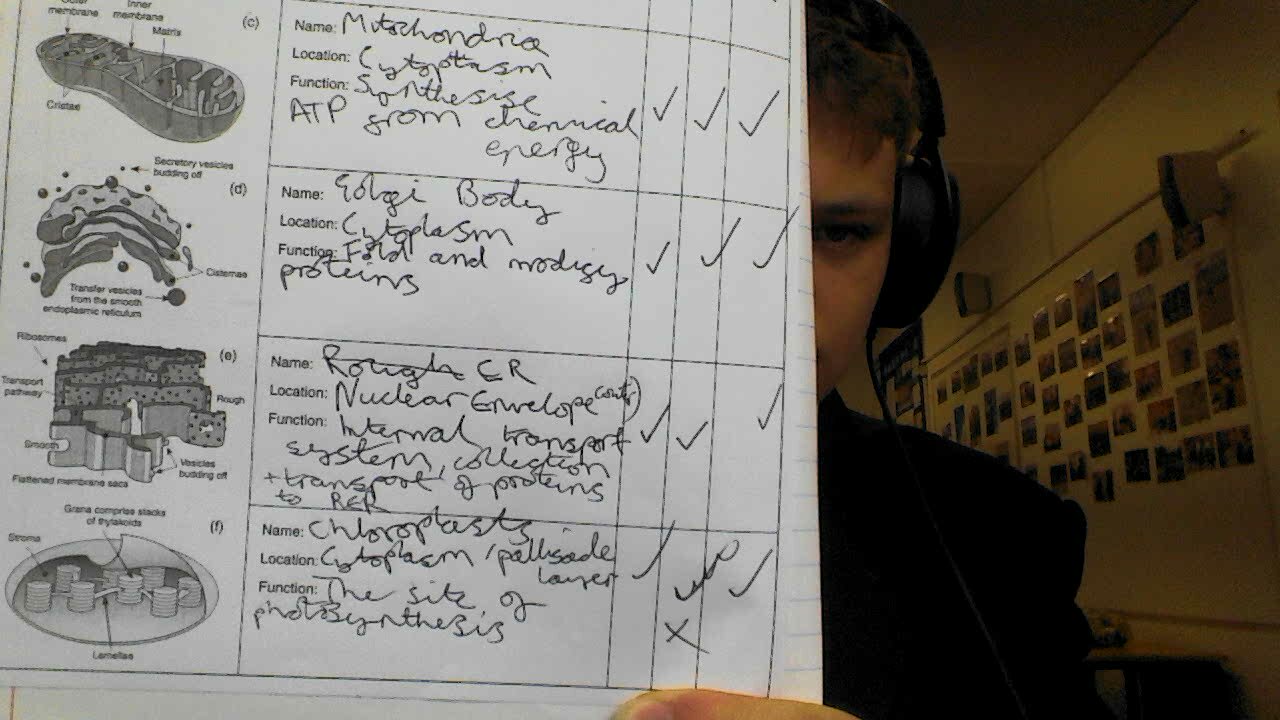 Outer
membrane
Inner
membrane
Matrix
Cristae
(c)
Name: Mitochondria
Location: Cytoplasm
Function: Synthesise
ATP from chemical
energy
Secretory vesicles
budding off
(d)
Cisternae
Transfer vesicles
from the smooth
endoplasmic reticulum
Name: Golgi Body
Location: Cytoplasm
Function: Fold and modify
proteins
Ribosomes
(e)
Transport
pathway
Rough
Smooth
Vesicles
budding off
Flattened membrane sacs
Name: Rough ER
Location: Nuclear Envelope
Function: Internal transport
system, collection
+ transport of proteins
to RER
Grana comprise stacks
of thylakoids
(f)
Stroma
Lamellae
Name: Chloroplasts
Location: Cytoplasm / pallisade
layer
Function: The site of
photosynthesis